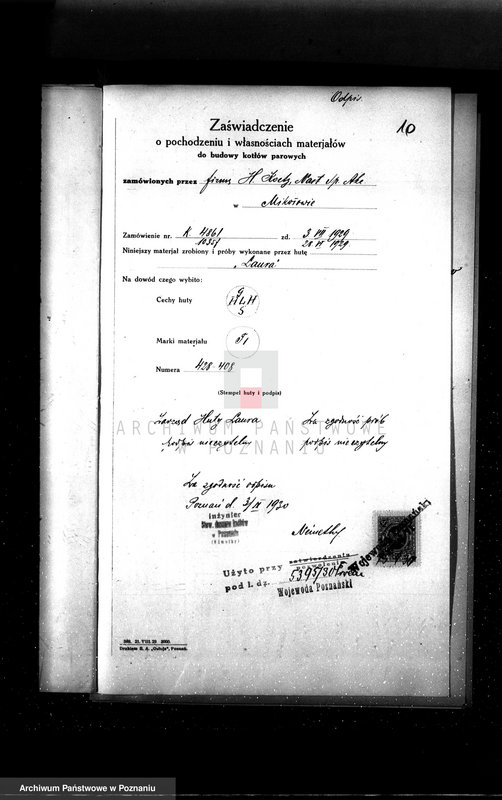 Odpis.
10
Zaświadczenie
o pochodzeniu i własnościach materjałów
do budowy kotłów parowych
zamówionych przez firmę H. Koetz, Nast Sp. Akc
w Mikołowie
Zamówienie nr. K. 4861 zd. 3 VII 1929
10351 28 VI 1929
Niniejszy materjał zrobiony i próby wykonane przez hutę
„Laura”
Na dowód czego wybito:
G
Cechy huty HLH
S
Marki materjału
Numera 428 408
(Stempel huty i podpis)
Zarząd Huty Laura Za zgodność prób
podpis nieczytelny podpis nieczytelny
ARCHIWUM PAŃSTWOWE
W POZNANIU
Za zgodność odpisu
Poznań d. 3/IX 1930
inżynier
Stow. dozoru kotłów
w Poznaniu
(Némethy)
Némethy
Użyto przy zatwierdzenia
pod l. dz. 5395/30
Wojewoda Poznański
Wojewoda Poznański
Drukiem S. A. „Ostoja”, Poznań.
Archiwum Państwowe w Poznaniu